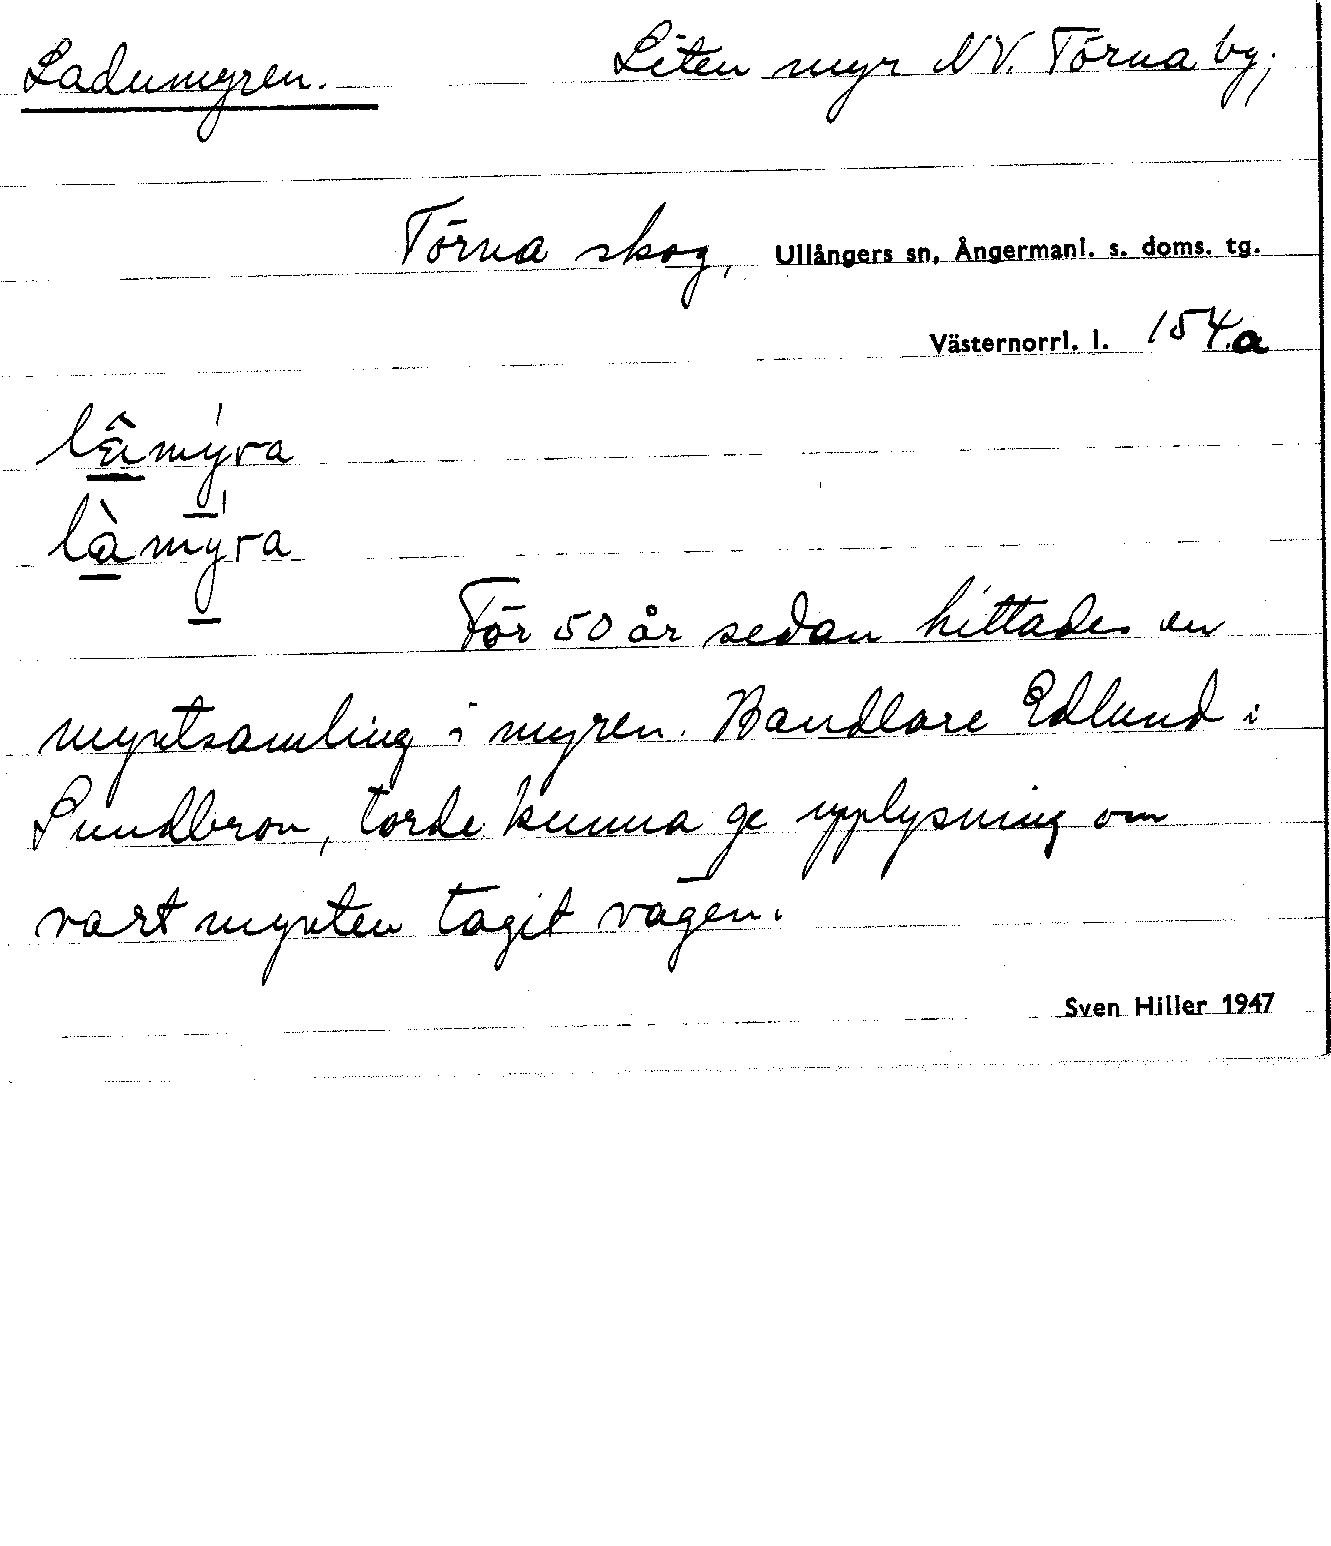 Ladumyren. Liten myr NV. Törna by;
Törna skog, Ullångers sn, Ångermanl. s. doms. tg.
Västernorrl. l. 154.a
lâmýra
làmýra
För 50 år sedan hittades en
myntsamling i myren. Handlare Edlund i
Sundbron, torde kunna ge upplysning om
vart mynten tagit vägen.
Sven Hiller 1947